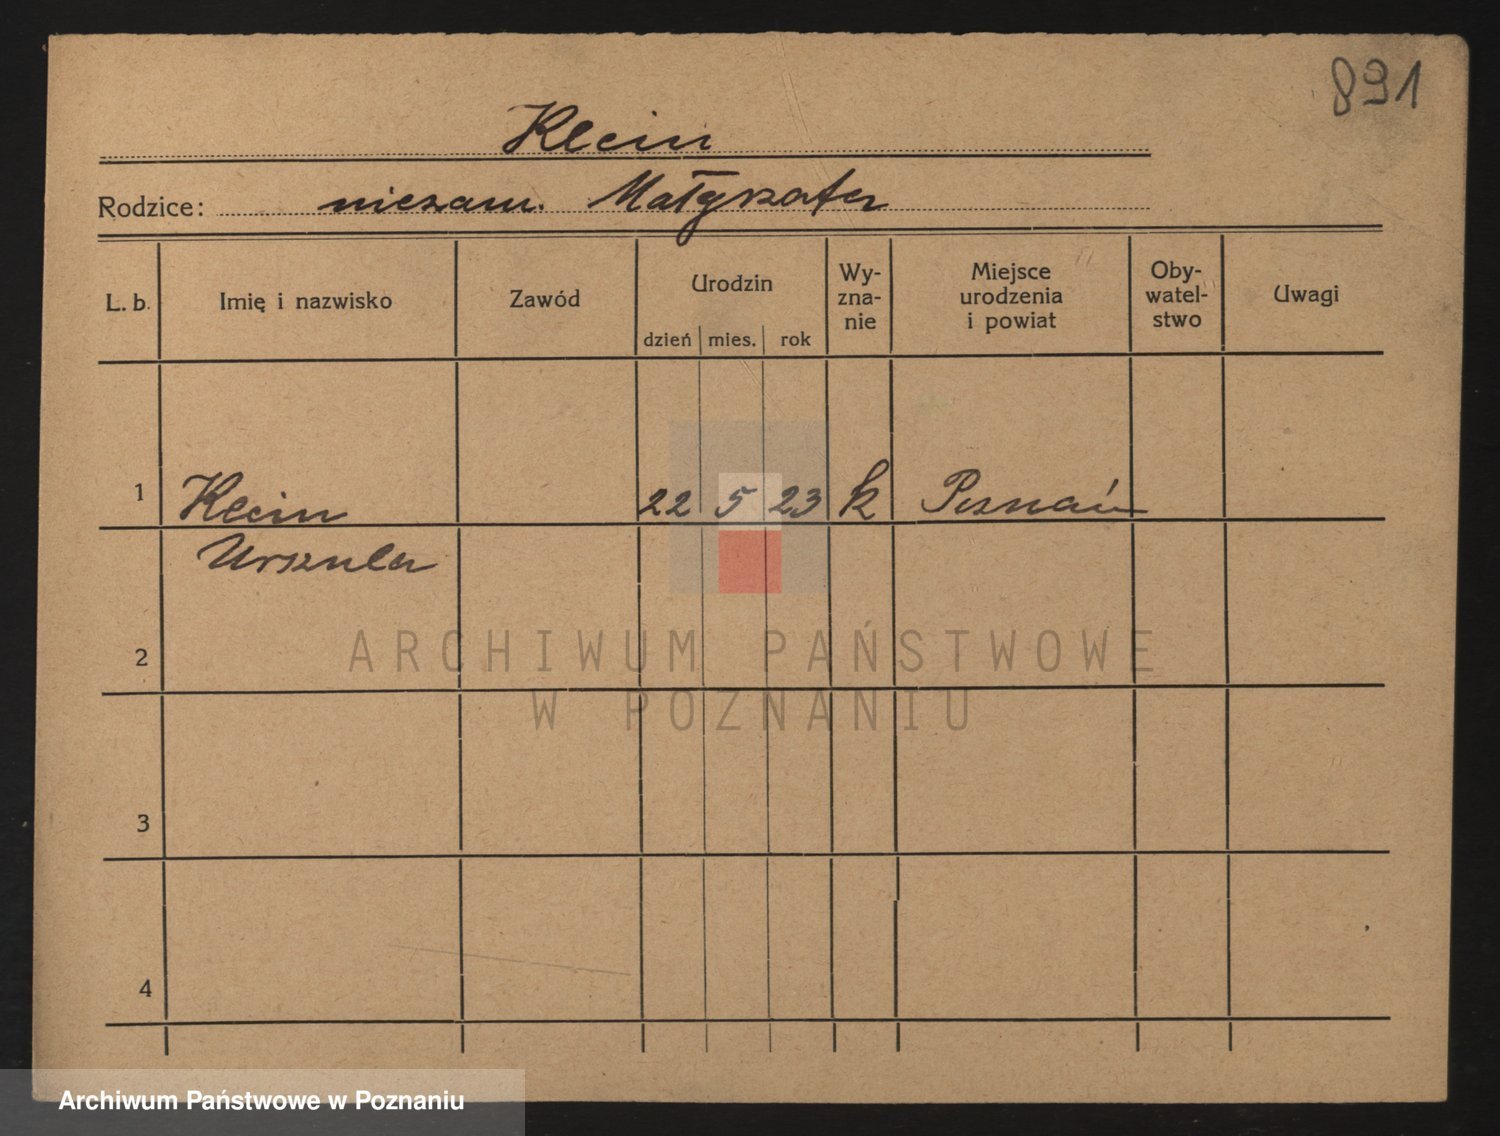 891
Klein
Rodzice: niezam. Małgrzata
L. b.
Imię i nazwisko
Zawód
Urodzin
dzień mies. rok
Wy-
zna-
nie
Miejsce
urodzenia
i powiat
Oby-
watel-
stwo
Uwagi
1 Klein 22 5 23 k Poznań
Urszula
2
3
4
ARCHIWUM PAŃSTWOWE
W POZNANIU
Archiwum Państwowe w Poznaniu